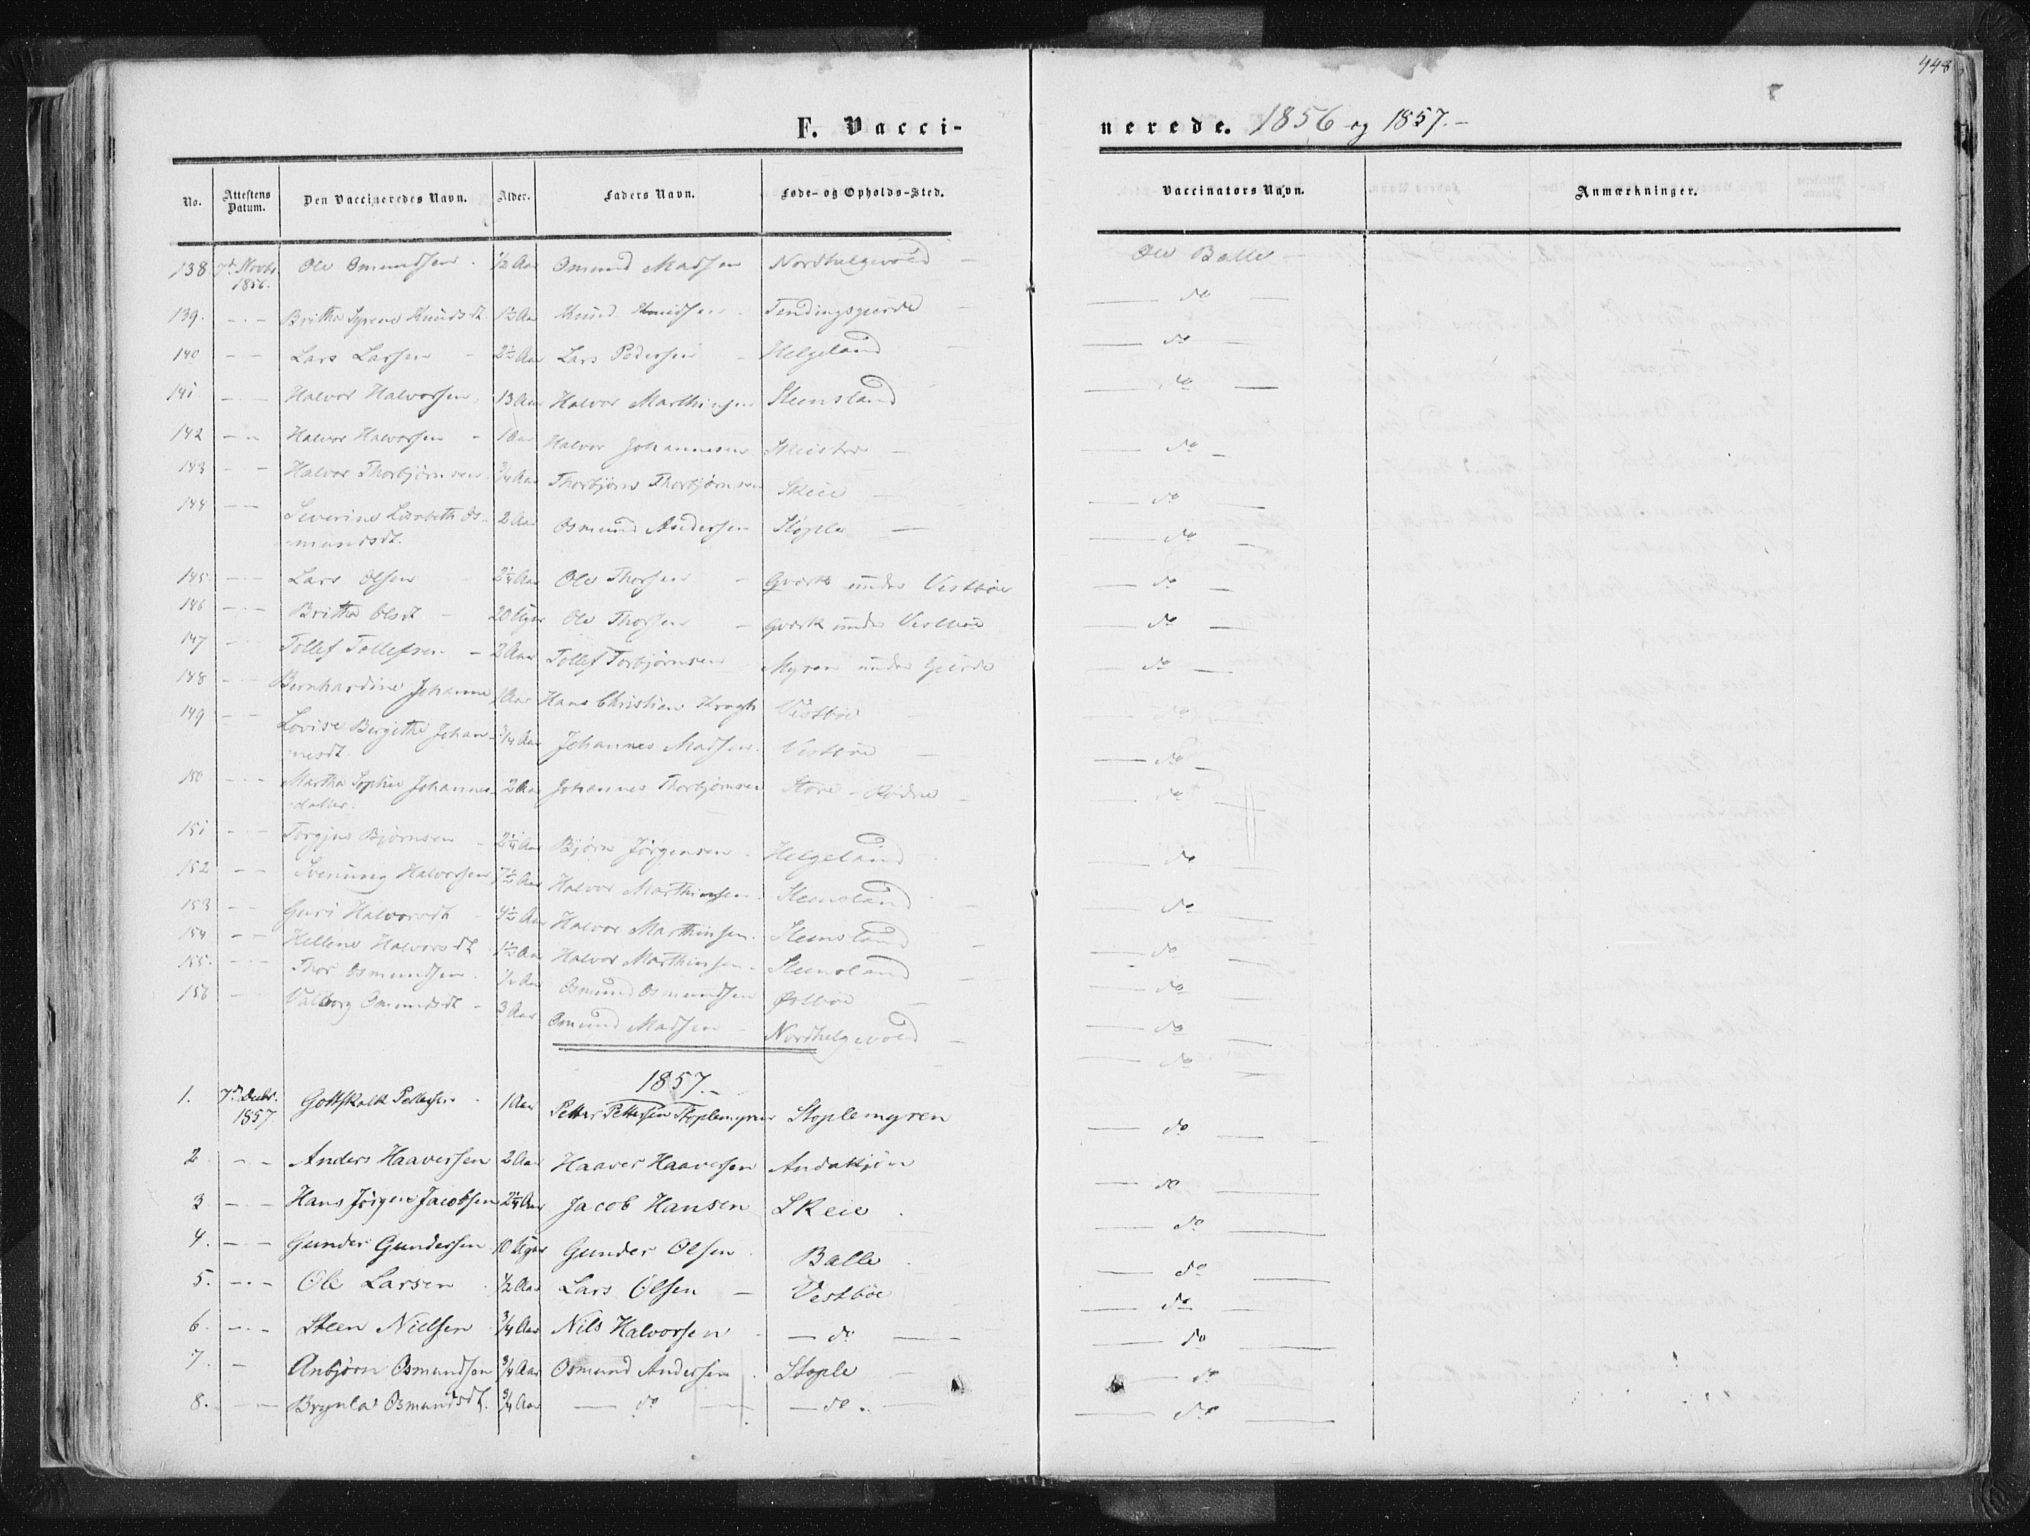 448
F. Vacci-nerede. 1856 og 1857.-
No. Attestens Datum. Den Vaccineredes Navn. Alder. Faders Navn. Føde- og Opholds-Sted. Vaccinators Navn. Anmærkninger.
138 7de Novbr 1856. Ole Omundsen. 1/2 Aar Omund Madsen Nordhelgevold - Ole Balle -
139. - - - Britha Syrene Knudsdt. 1 1/2 Aar Knud Knudsen Tendingsgierde - — do —
140 - - Lars Larsen - 2 1/2 Aar Lars Pedersen - Helgeland — do —
141 - - Halvor Halvorsen, 13 Aar Halvor Marthinsen Steensland — do —
142 - - Halvor Halvorsen - 1 Aar Halvor Johannesen - — do —
143 - - Halvor Thorbjørnsen 3/4 Aar Thorbjørn Thorbjørnsen Skeie — do —
144 - - Severine Lisebeth Os-mundsdt. 2 Aar Osmund Andersen Stople — — do —
145 - - - Lars Olsen - 2 1/4 Aar Ole Thorsen - Qværk under Vestbøe — do —
146 - - - Britha Olsdt - 20 Uger Ole Thorsen - Qværk under Vestbøe — do —
147 - Tollef Tollefsen - 2 Aar Tollef Torbjørnsen Myren under Gierde — do —
148 - - Bernhardine Johanne 1 Aar Hans Christian Krogh Vestbøe — do —
149 - - Lovise Bergithe Johan-nesdt 3/4 Aar Johannes Madsen. Vestbøe — — do —
150 - - - Martha Sophie Johannes-datter. 2 Aar Johannes Thorbjørnsen Store - Rødne - — do —
151 - - Torgjus Bjørnsen - 2 1/4 Aar Bjørn Jørgensen. Helgeland — do —
152 - - Svenung Halvorsen 7 1/2 Aar Halvor Marthinsen. Steensland — do —
153 - - Guri Halvorsdt - 4 1/2 Aar Halvor Marthinsen. Steensland — do —
154 - - Hellene Halvorsdt 1 1/2 Aar Halvor Marthinsen. Steensland — do —
155. - - Thor Osmundsen. 1/2 Aar Osmund Osmundsen Østbøe — — do —
156 - - Valborg Omundsdt - 3 Aar Omund Madsen - Nordhelgevold - — do —
1857.-
1. 7de Decbr. 1857 Gottskalk Pettersen. 1 Aar Petter Pettersen Stoplemyren Stoplemyren — do —
2 - - Anders Haaversen 2 Aar Haaver Haaversen — do —
3 - - - Hans Jörgen Jacobsen 2 1/4 Aar Jacob Hansen Skeie. — do —
4. - - - Gunder Gundersen 10 Uger Gunder Olsen. Balle. — do —
5. - - - Ole Larsen. 1/2 Aar Lars Olsen — Vestbøe — do —
6. - - - Steen Nielsen 3/4 Aar Nils Halvorsen - — do — — do —
7. - Anbjörn Osmundsen 3/4 Aar Osmund Andersen. Stople - — do —
8. - - - Osmundsdt. 3/4 Aar — do — — do. — — do —